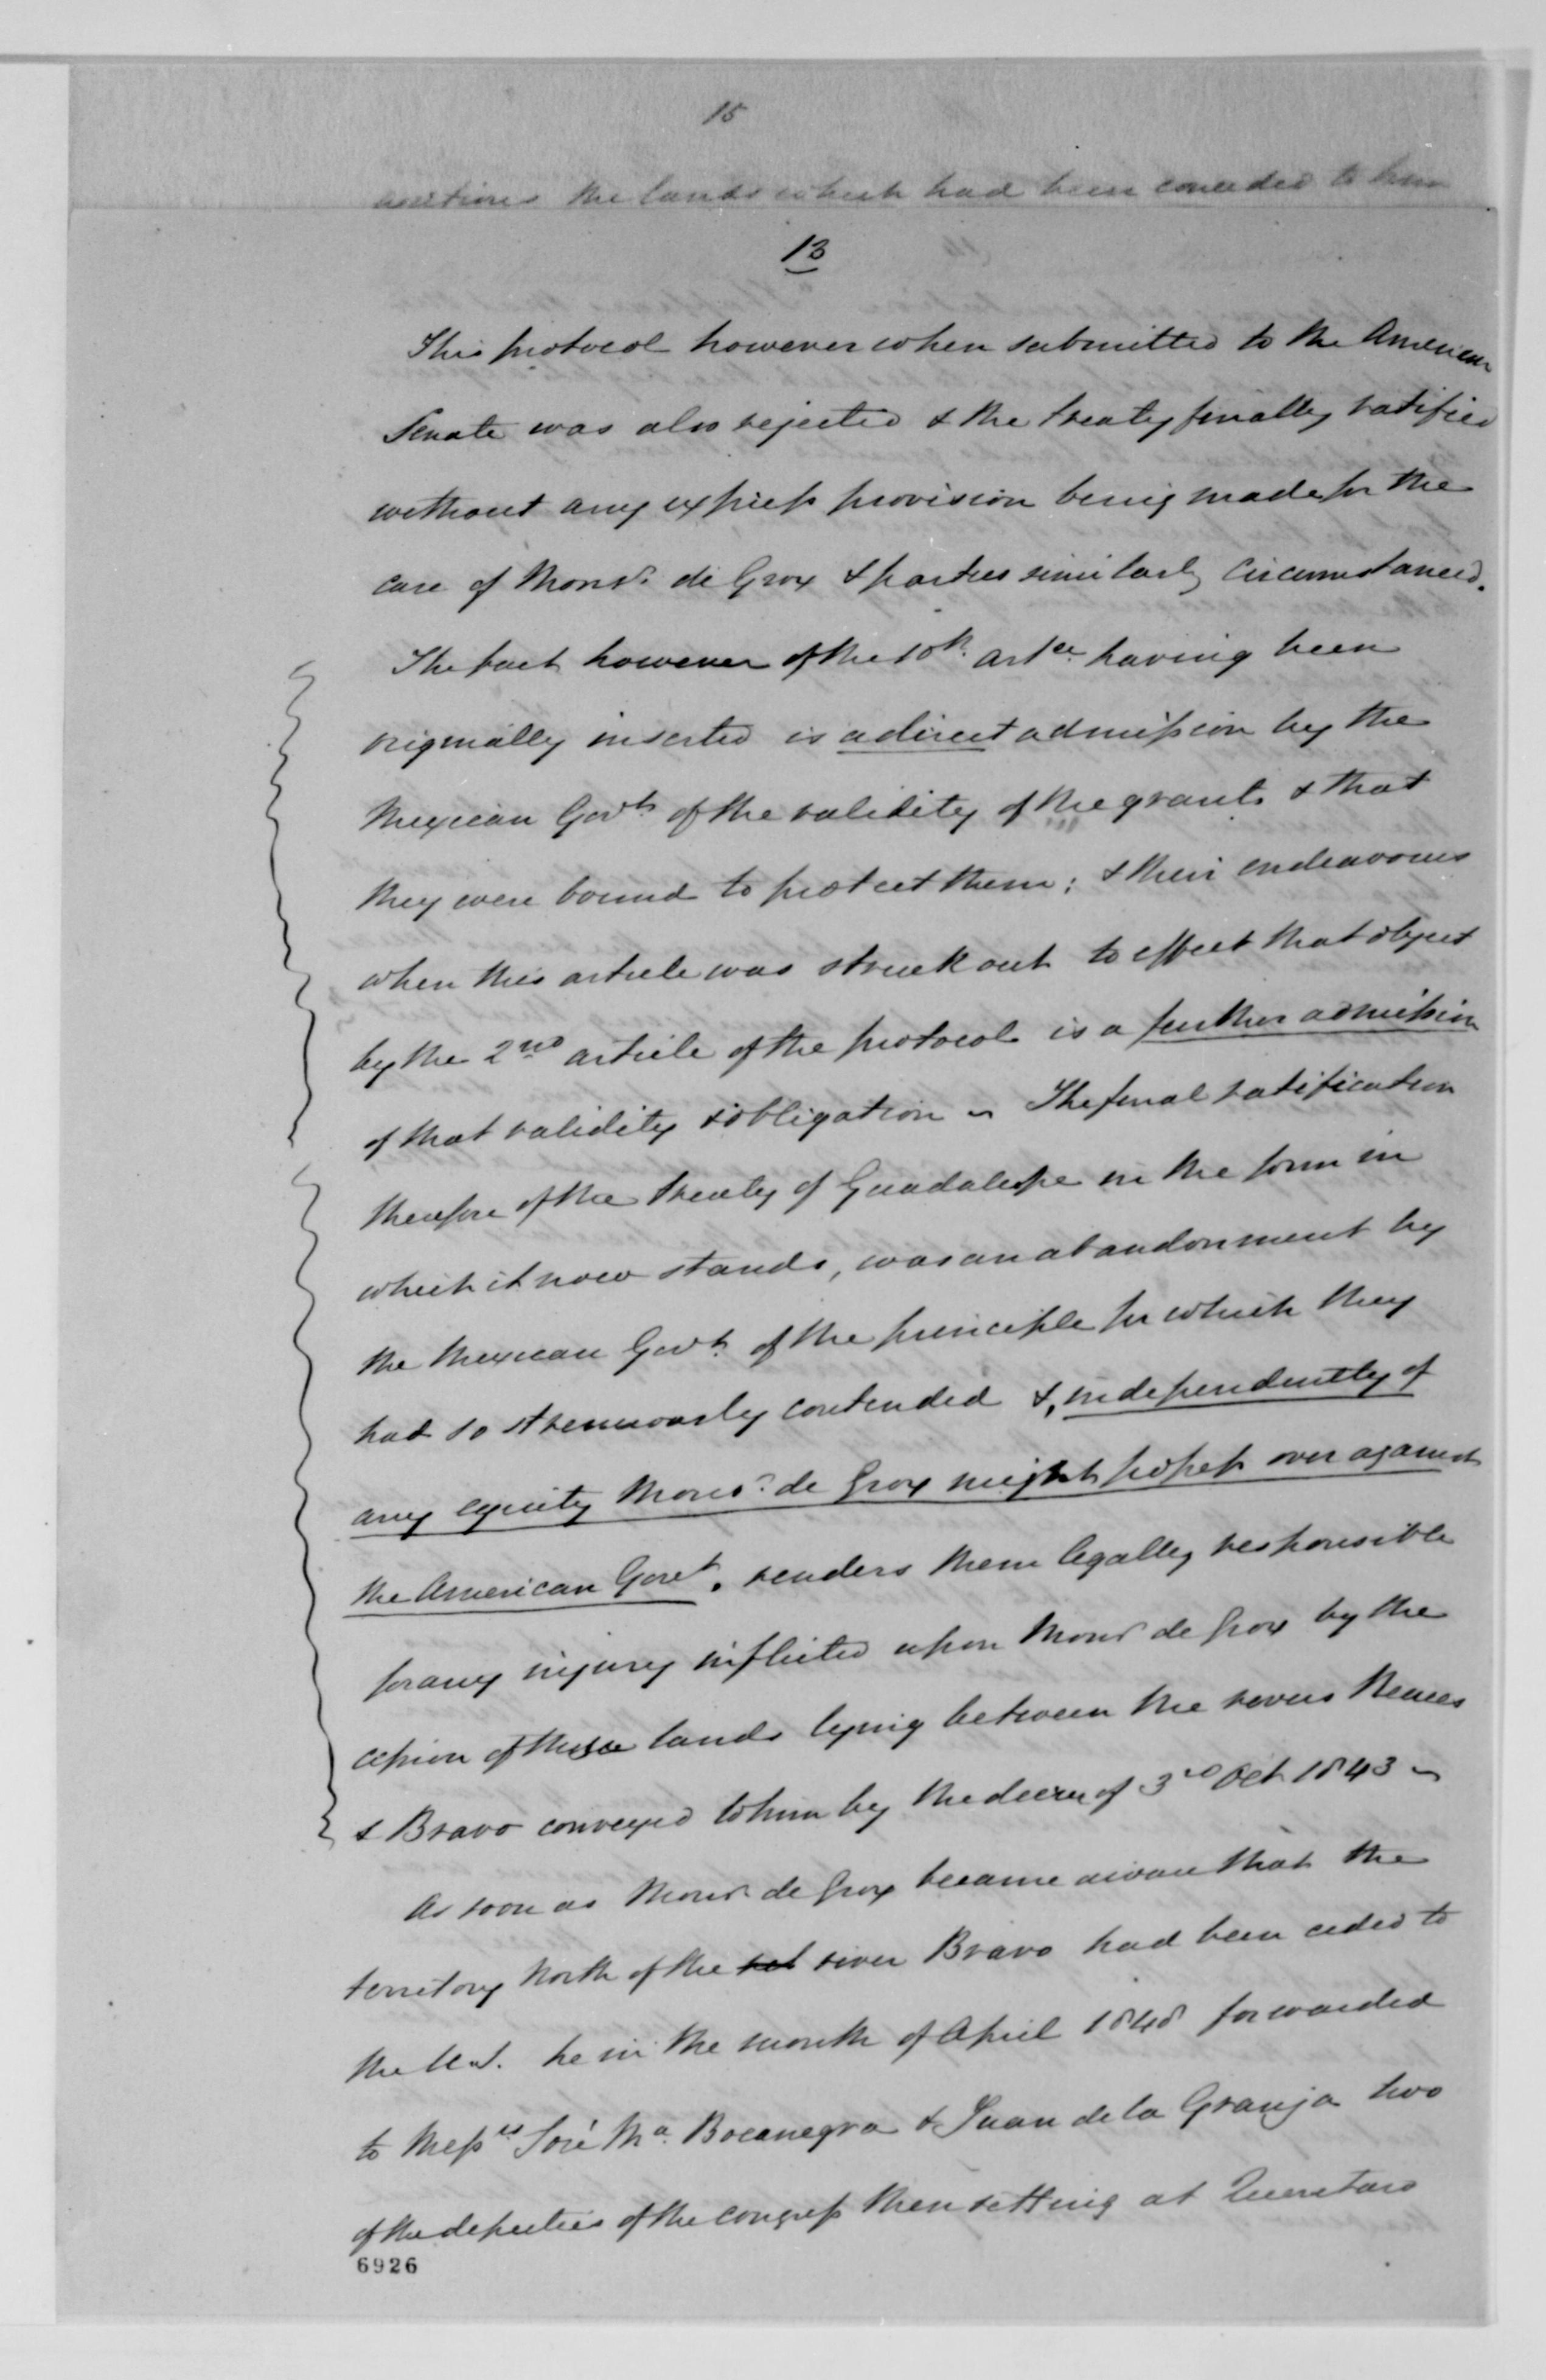 15
the lands which had been conceded to him
13
This protocol however when submitted to the American
Senate was also rejected & the treaty finally ratified
without any express provision being made for the
case of Monsr. de Grox & parties similarly circumstanced.
The fact however of the 10th. artce. having been
originally inserted is a direct admission by the
Mexican Govt. of the validity of the grants & that
they were bound to protect them; & their endeavours
when this article was struck out to effect that object
by the 2nd article of the protocol is a further admission
of that validity & obligation ~ The final ratification
therefore of the treaty of Guadalupe in the form in
which it now stands, was an abandonment by
the Mexican Govt. of the principle for which they
had so strenuously contended &, independently of
any equity Monsr. de Grox might possess over against
the American Govet. renders them legally responsible
for any injury inflicted upon Monsr de Grox by the
cession of these lands lying between the rivers Nueces
& Bravo conveyed to him by the decree of 3rd Oct 1843 ~
As soon as Monsr. de Grox became aware that the
territory North of the river Bravo had been ceded to
the U.S. he in the month of April 1848 forwarded
to Messrs José Ma. Bocanegra & Juan de la Granja two
of the deputies of the congress then sitting at Queretaro
6926